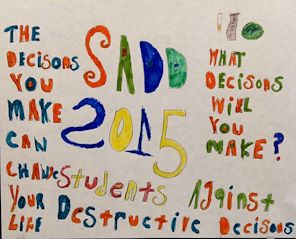 THE
DECISONS
YOU
MAKE
CAN
CHANGE
YOUR
LIFE
SADD
2015
Students Against
Destructive Decisons
WHAT
DECISONS
WILL
YOU
MAKE?